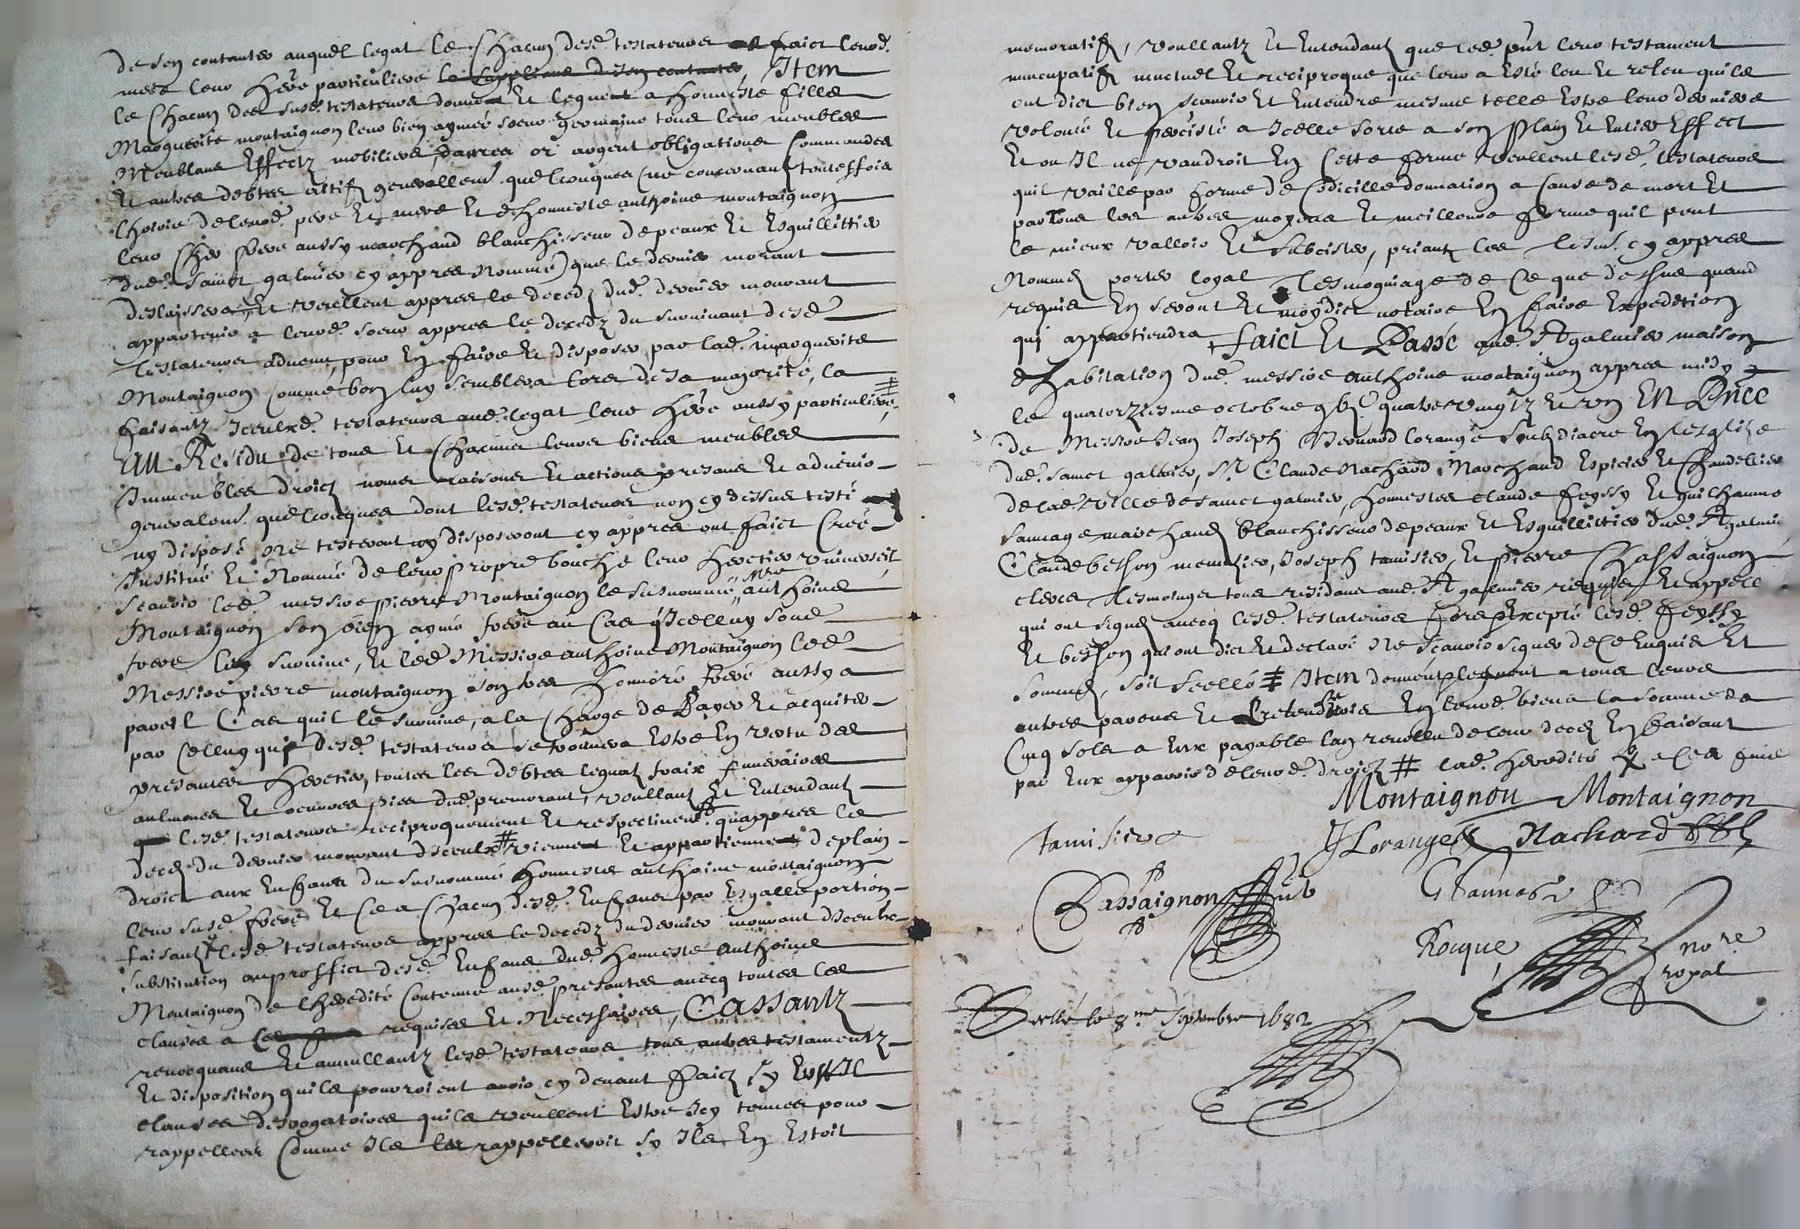 de sen contanter auquel legat le Chacun desd. testateurs ont faict leurd.
mere leur hère particuliere le Suppliant disen contanter, Item
le Chacun des susd. testateurs donnent et leguent a honneste fille
Margueritte montaignon leur bien aymée soeur germaine tous leurs meubles
Meublans Effectz mobiliers danrées or argent obligations Commandes
Et autres debtes actifz generallemt. quelconques (ne concernant touteffois
l'hoirie de leursd. pere Et mere Et d'honneste anthoine montaignon
leur cher frere aussy marchand blanchisseur de peaux Et Esguillittier
dud. Sainct galmier cy appres Nommé) que le dernier morant
deslaissera, Et veullent appres le decedz dud. dernier mourant
appartenir a leurd. soeur appres le decedz du survivant desd.
testateurs advenu, pour En faire Et disposer par lad. margueritte
Montaignon Comme bon luy semblera lors de sa majorité, la
faisantz Iceulxd. testateurs aud. legat leur hère aussy particuliere,
Au Residu de tous Et Chacuns leurs biens meubles
Immeubles droictz noms raisons Et actions presans Et advenir
generalemt. quelconques dont lesd. testateurs non cy dessus testé
ny disposé Ne testeront ny disposeront cy appres ont faict Creé
Institué Et Nommé de leur propre bouche leur heretier Universel
Scavoir led. messire pierre Montaignon le susnommé Mre anthoine
Montaignon son bien aymé frere au Cas q'Icelluy sond.
frere luy survive, Et led. Messire anthoine Montaignon led.
Messire pierre montaignon son tres honnoré frere aussy a
pareil Cas quil le survive, a la Charge de Payer Et acquiter
par Celluy qui desd. testateurs se trouvera Estre En vertu des
presantes heretier, toutes les debtes legaatz fraix funeraires
aulmones Et oeuvres pies dud. premorant, voullant Et Entendant
lesd. testateurs reciproquement Et respectivemt. qu'appres le
decedz du dernier mourant d'Iceulx # vienent Et appartienent de plain
droict aux Enfans du susnommé honneste anthoine montaignon
leur susd. frere Et Ce a Chacun desd. Enfans par Esgalle portion
faisantz lesd. testateurs appres le decedz du dernier mourant d'Iceulx
substitution au proffict desd. Enfans dud. honneste anthoine
Montaignon de l'heredité Contenue ausd. presantes avecq toutes les
clauses a requises Et Necessaires, Cassantz
revocquans Et annullantz lesd. testateurs tous autres testamentz
Et disposition quils pourroient avoir cy devant faictz sy Eust Il
clauses desrogatoires quils veullent Estre Icy tenues pour
rappellées Comme Ils les rappelleroit sy Ils En Estoit
memoratifz, voullantz Et Entendantz que led. pnt leur testament
nuncupatif mutuel Et reciproque que leur a Esté leu Et releu quils
ont dict bien scavoir Et Entendre mesme telle Estre leur derniere
volonté Et persisté a Icelle sorte a son Plain Et Entier Effect
Et ou Il ne vaudroit En Cette forme veullent lesd. testateurs
quil vaille par forme de Codicille donnation a Cause de mort Et
par tous les autres moyens Et meilleure forme quil peut
le mieux valloir Et subcister, priantz les tesm. cy appres
Nommés porter loyal tesmoignage de Ce que dessus quand
requis En seront Et moydict notaire En faire Expedition
qui appartiendra, faict Et Passé aud. St galmier maison
d'habitation dud. messire anthoine montaignon appres midy
le quatorziesme octobre gbj. quatre vingtz Et un En Pnce
de Messire Jean Joseph Bernard lorange soubzdiacre En l'esglize
dud. sainct galmier, Sr Claude Nachard Marchand Espicier Et Chandellier
de lad. ville de sainct galmier, honnestes claude feyssy Et guilhaume
sauuage marchandz blanchisseurs de peaux Et Esguillittier dud. St galmier
Claude besson menuzier, Joseph tamisier, Et pierre Chassaignon
clercs tesmoings tous residans aud. St galmier requis Et appelé
qui ont signés avecq lesd. testateurs fors Excepté lesd. feyssy
Et besson qui ont dict Et declaré Ne scavoir signer de Ce Enquis Et
sommés, soit scellé # Item donnent leguent a tous leurs
autres parens Et Pretendrois En leursd. biens la somme de
Cinq sols a Eux payable l'an revollu de leur decedz En faisant
par Eux apparoir de leursd. droictz # lad. heredité
Montaignon Montaignon
tamisier
JJ Lorange Nachard
Chassaignon
G Saunage
Rocque, nore
royal
Scellé le 8me septembre 1682